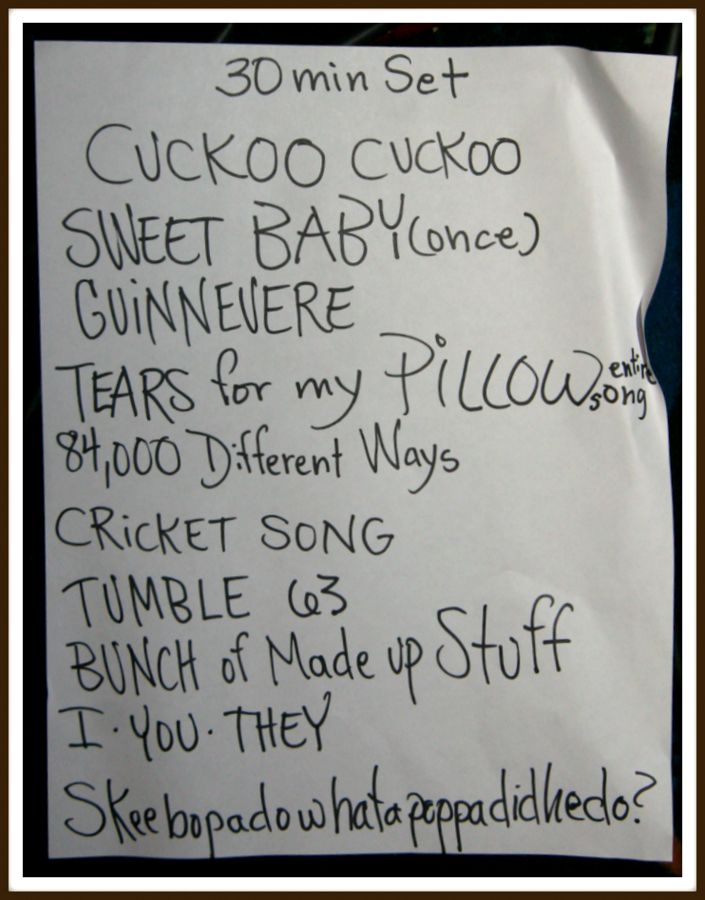 30 min Set
CUCKOO CUCKOO
SWEET BABY (once)
GUiNNEVERE
TEARS for my PiLLOW entire song
84,000 Different Ways
CRicKET SONG
TUMBLE 63
BUNCH of Made up Stuff
I · YOU · THEY
Skeebopadowhatapoppadidhedo?